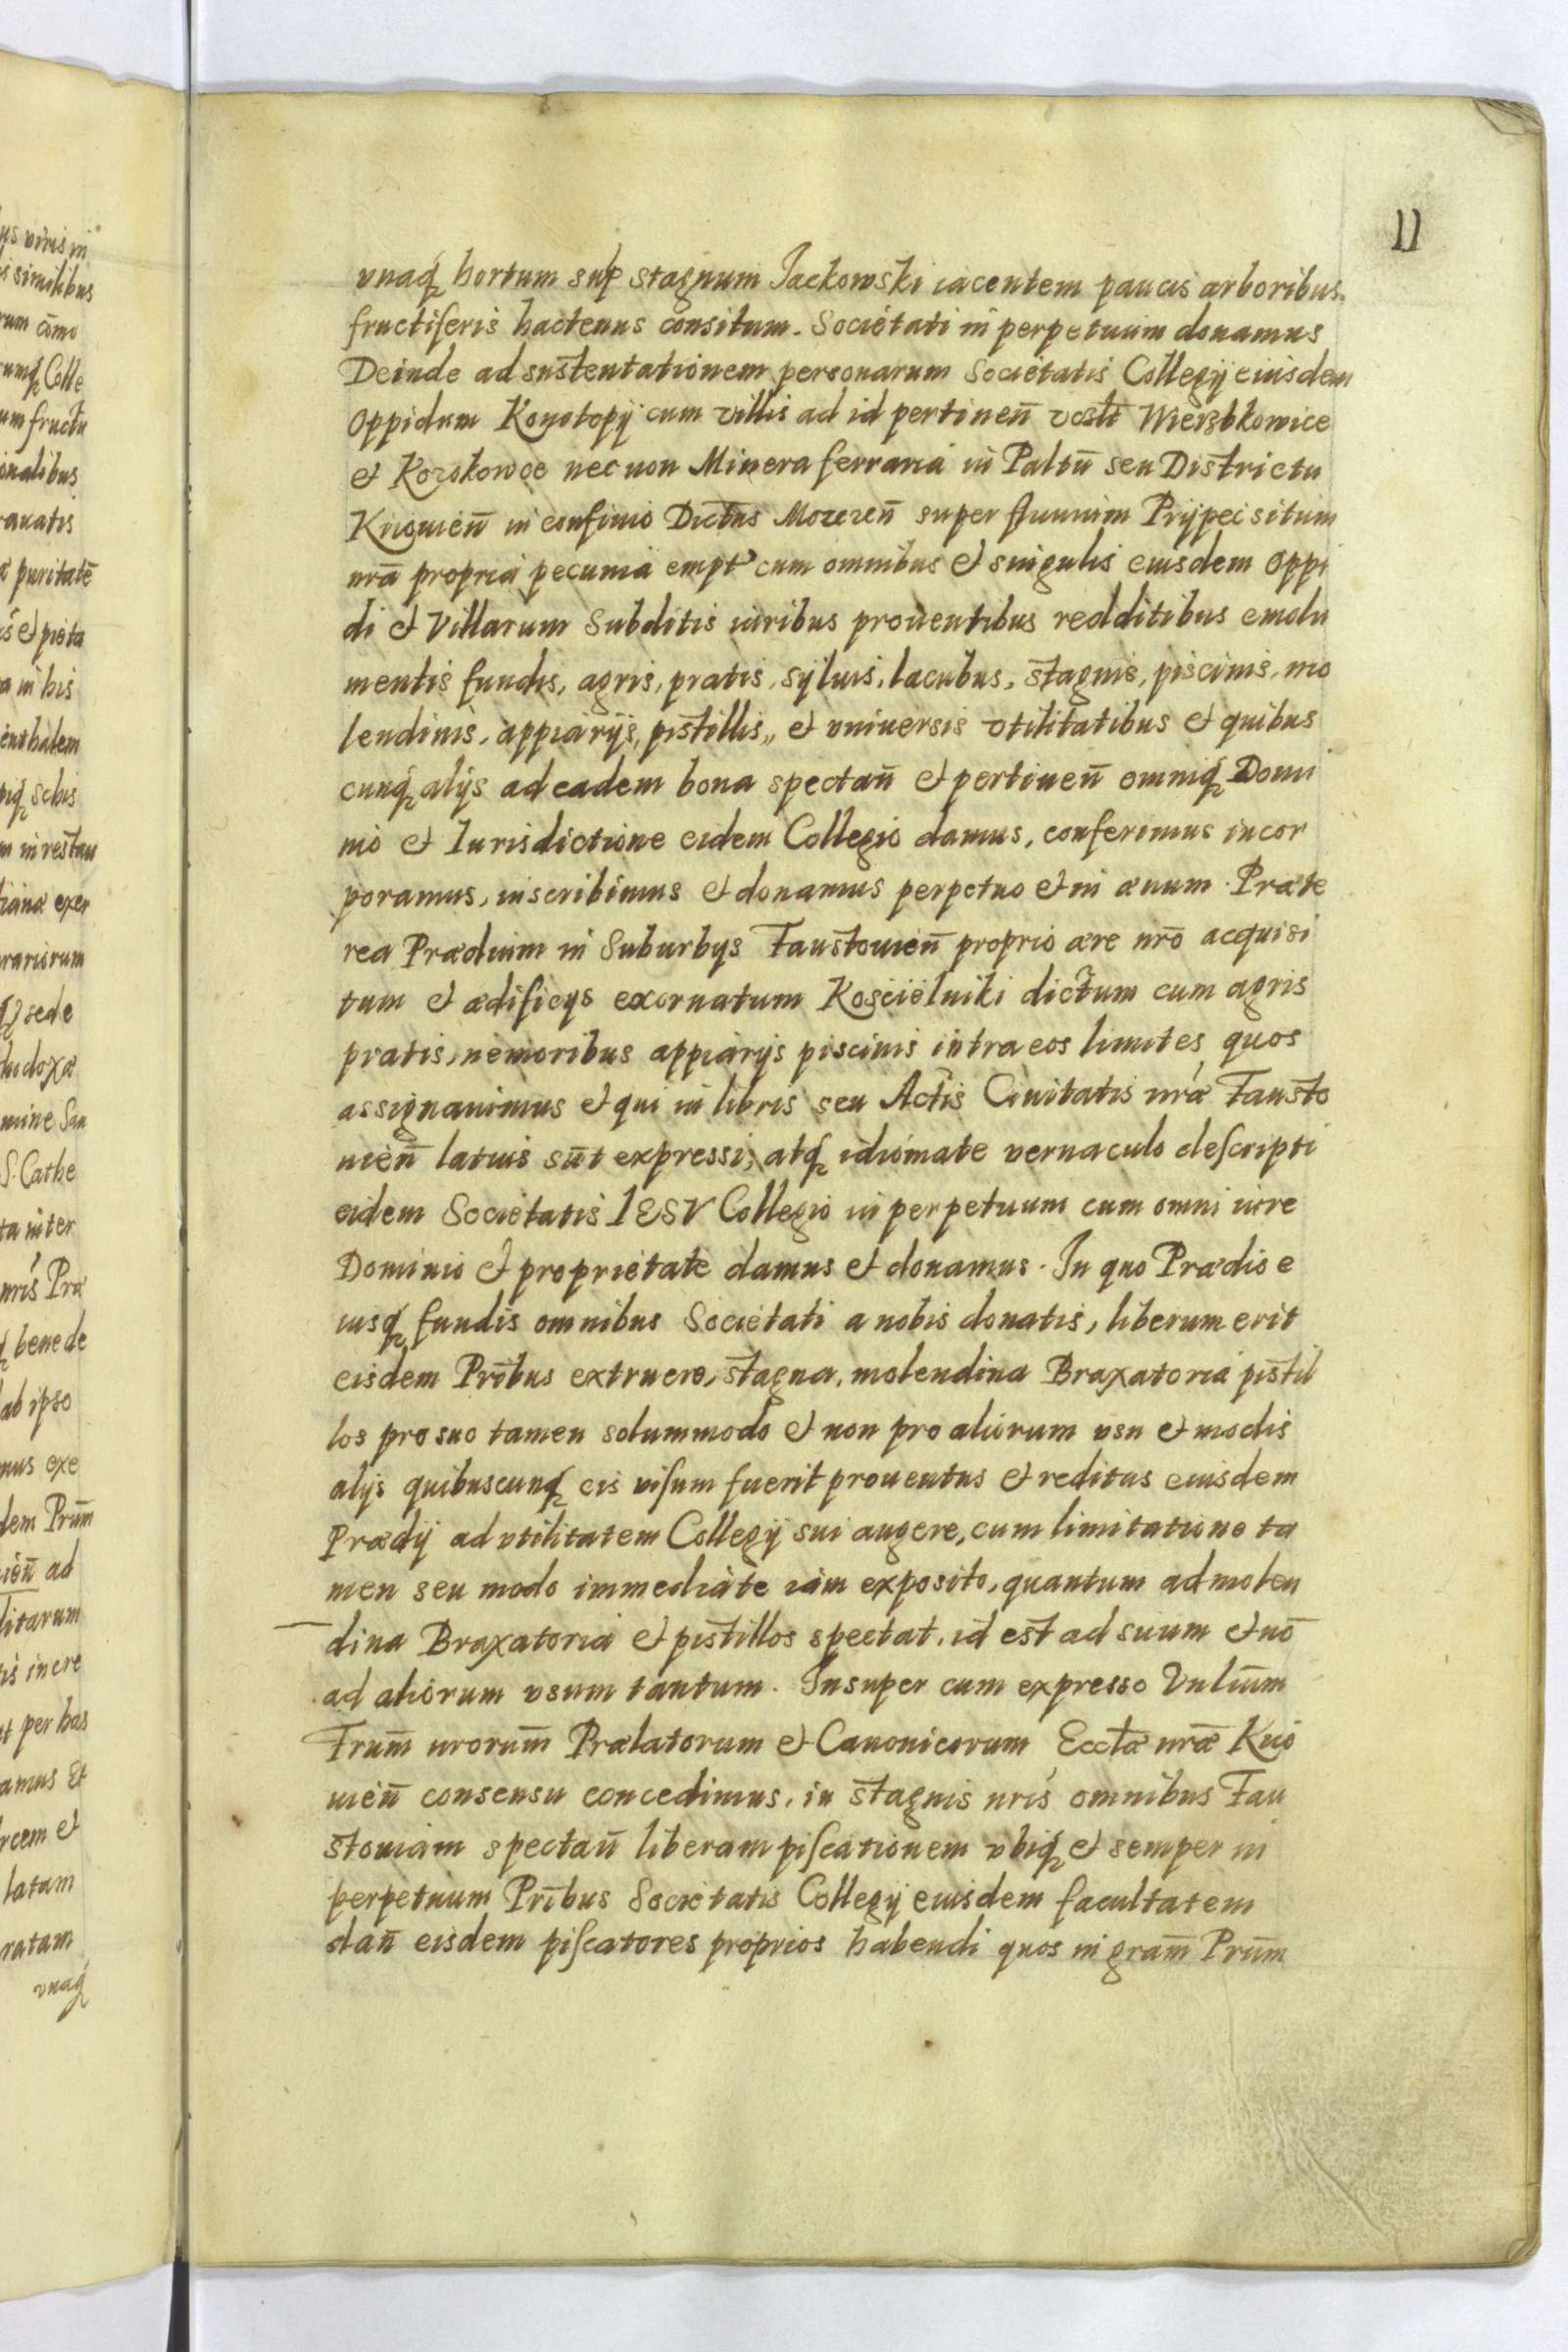 11
vnaq hortum sup stagnum Jackowski iacentem paucis arboribus
fructiferis hactenus consitum. Societati in perpetuum donamus
Deinde ad sustentationem personarum Societatis Collegij eiusdem
Oppidum Konotopij cum villis ad id pertineñ Wierzbkowice
et nec non Minera ferraria in Paltū seu Districtu
Kijouieñ in confinio Dictus Mozereñ super fluuium Prijpeć situm
nrā propria pecunia empt cum omnibus et singulis eiusdem Oppi
di et Villarum Subditis iuribus prouentibus redditibus emolu
mentis fundis, agris, pratis, syluis, lacubus, stagnis, piscinis, mo
lendinis, appiarijs, pistillis, et vniuersis vtilitatibus et quibus
cunq alijs ad eadem bona spectañ et pertineñ omniq Domi
nio et Iurisdictione eidem Collegio damus, conferimus incor
poramus, inscribimus et donamus perpetuo et in æuum. Præte
rea Prædium in Suburbys Faustouieñ proprio ære nrō acquisi
tum et ædificijs exornatum Koscielniki dictum cum agris
pratis, nemoribus appiarijs piscinis intra eos limites quos
assignauimus et qui in libris seu Actis Ciuitatis nræ Fausto
uieñ latius sūt expressi, atq idiomate vernaculo descripti
eidem Societatis IESV Collegio in perpetuum cum omni iure
Dominio et proprietate damus et donamus. In quo Prædio e
iusq fundis omnibus Societati a nobis donatis, liberum erit
eisdem Pribus extruere, stagna, molendina Braxatoria pistil
los pro suo tamen solummodo et non pro aliorum vsu et modis
alijs quibuscunq eis visum fuerit prouentus et reditus eiusdem
Prædij ad vtilitatem Collegij sui augere, cum limitatione ta
men seu modo immediate iam exposito, quantum ad molen
dina Braxatoria et pistillos spectat, id est ad suum et nō
ad aliorum vsum tantum. Insuper cum expresso Vnlium
Frum nrorum Prælatorum et Canonicorum Ecclæ nræ Kijo
uieñ consensu concedimus, in stagnis nris omnibus Fau
stouiam spectañ liberam piscationem vbiq et semper in
perpetuum Pribus Societatis Collegij eiusdem facultatem
dañ eisdem piscatores proprios habendi quos in gram Prum
us viris in
similibus
rum
umq Colle
um fructu
onalibus
ranatis
puritatē
et pieta
a in his
scbis
m in restau
exer
rariorum
sede
mine San
S. Cathe
ta inter
nris Præ
benede
ab ipso
mus exe
dem Prum
ieñ ad
litarum
is incre
ut per has
amus Et
rcem et
latam
ratam
vnaq